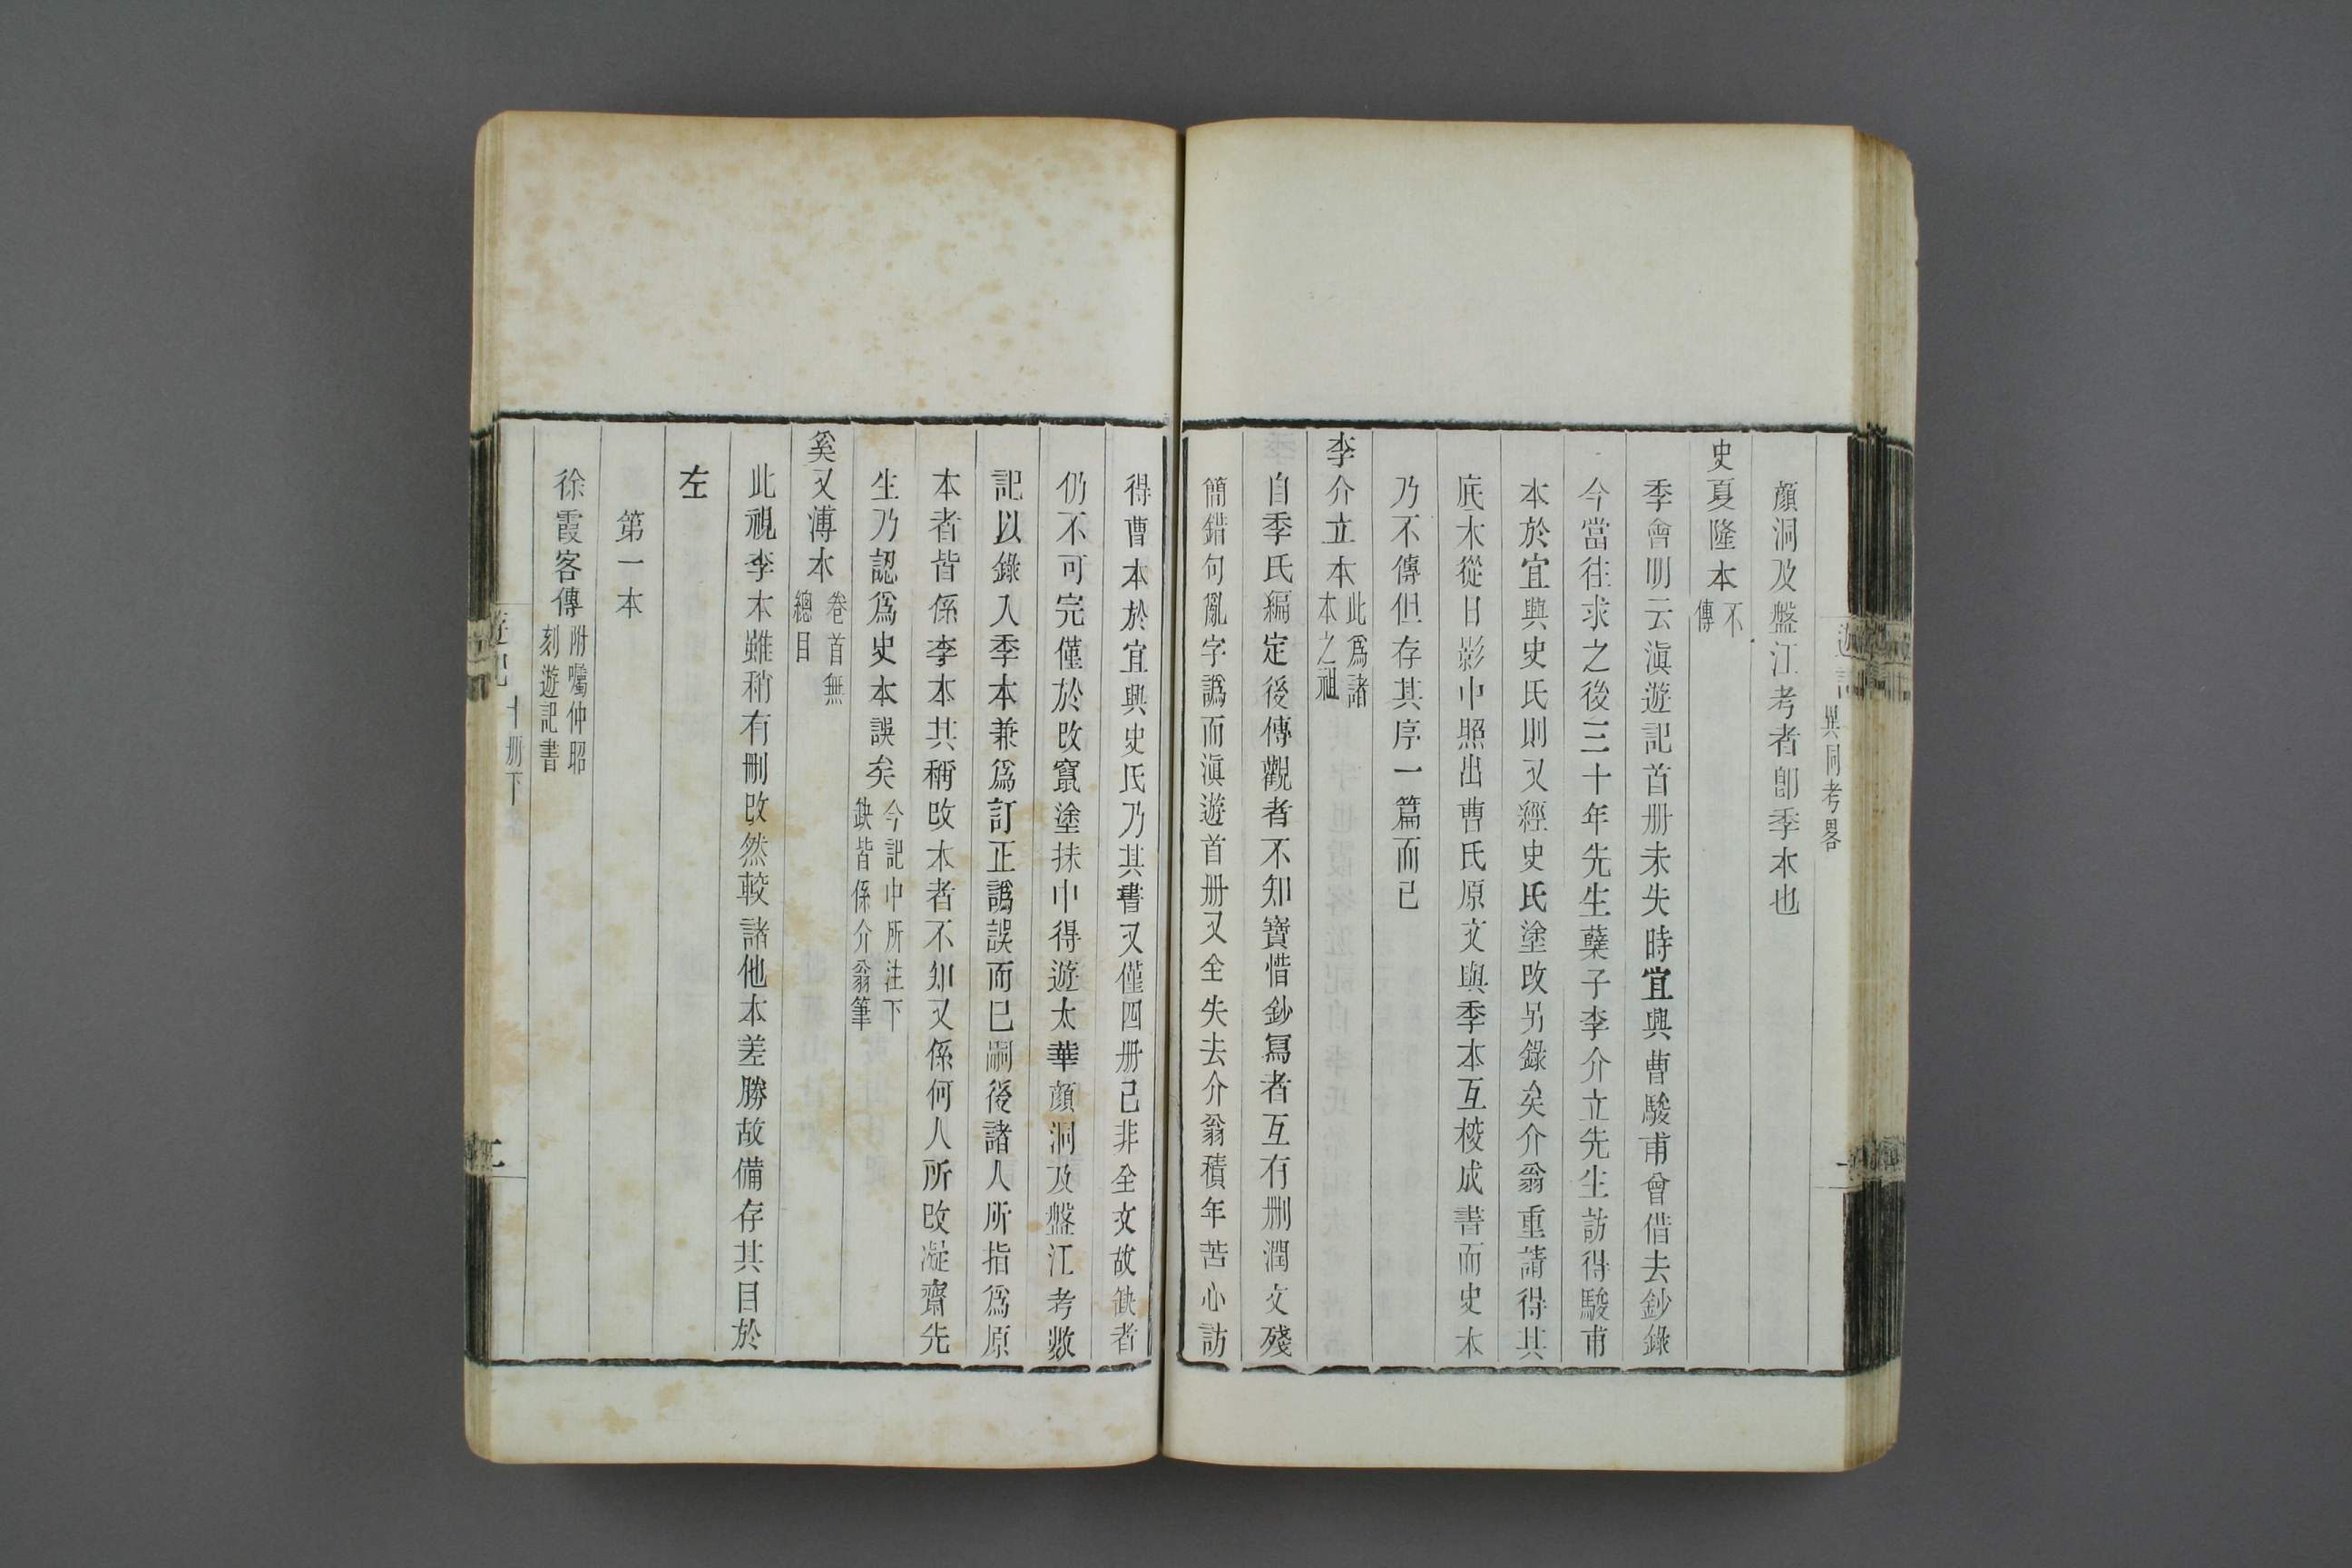 異同考畧
顏洞及盤江考者卽季本也
史夏隆本不傳
季會明云滇遊記首册未失時宜興曹駿甫曾借去鈔錄
今當往求之後三十年先生孽子李介立先生訪得駿甫
本於宜興史氏則又經史氏塗改另錄矣介翁重請得其
底本從日影中照出曹氏原文與季本互校成書而史本
乃不傳但存其序一篇而已
李介立本此爲諸本之祖
自季氏編定後傳觀者不知寶惜鈔寫者互有刪潤文殘
簡錯句亂字譌而滇遊首册又全失去介翁積年苦心訪
得曹本於宜興史氏乃其書又僅四册已非全文故缺者
仍不可完僅於改竄塗抹中得遊太華顏洞及盤江考數
記以錄入季本兼爲訂正譌誤而已嗣後諸人所指爲原
本者皆係李本其稱改本者不知又係何人所改凝齋先
生乃認爲史本誤矣今記中所注下缺皆係介翁筆
奚又溥本卷首無總目
此視李本雖稍有刪改然較諸他本差勝故備存其目於
左
第一本
徐霞客傳附囑仲昭刻遊記書
十册下